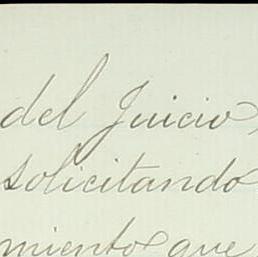 del Juicio,
solicitando
miento que